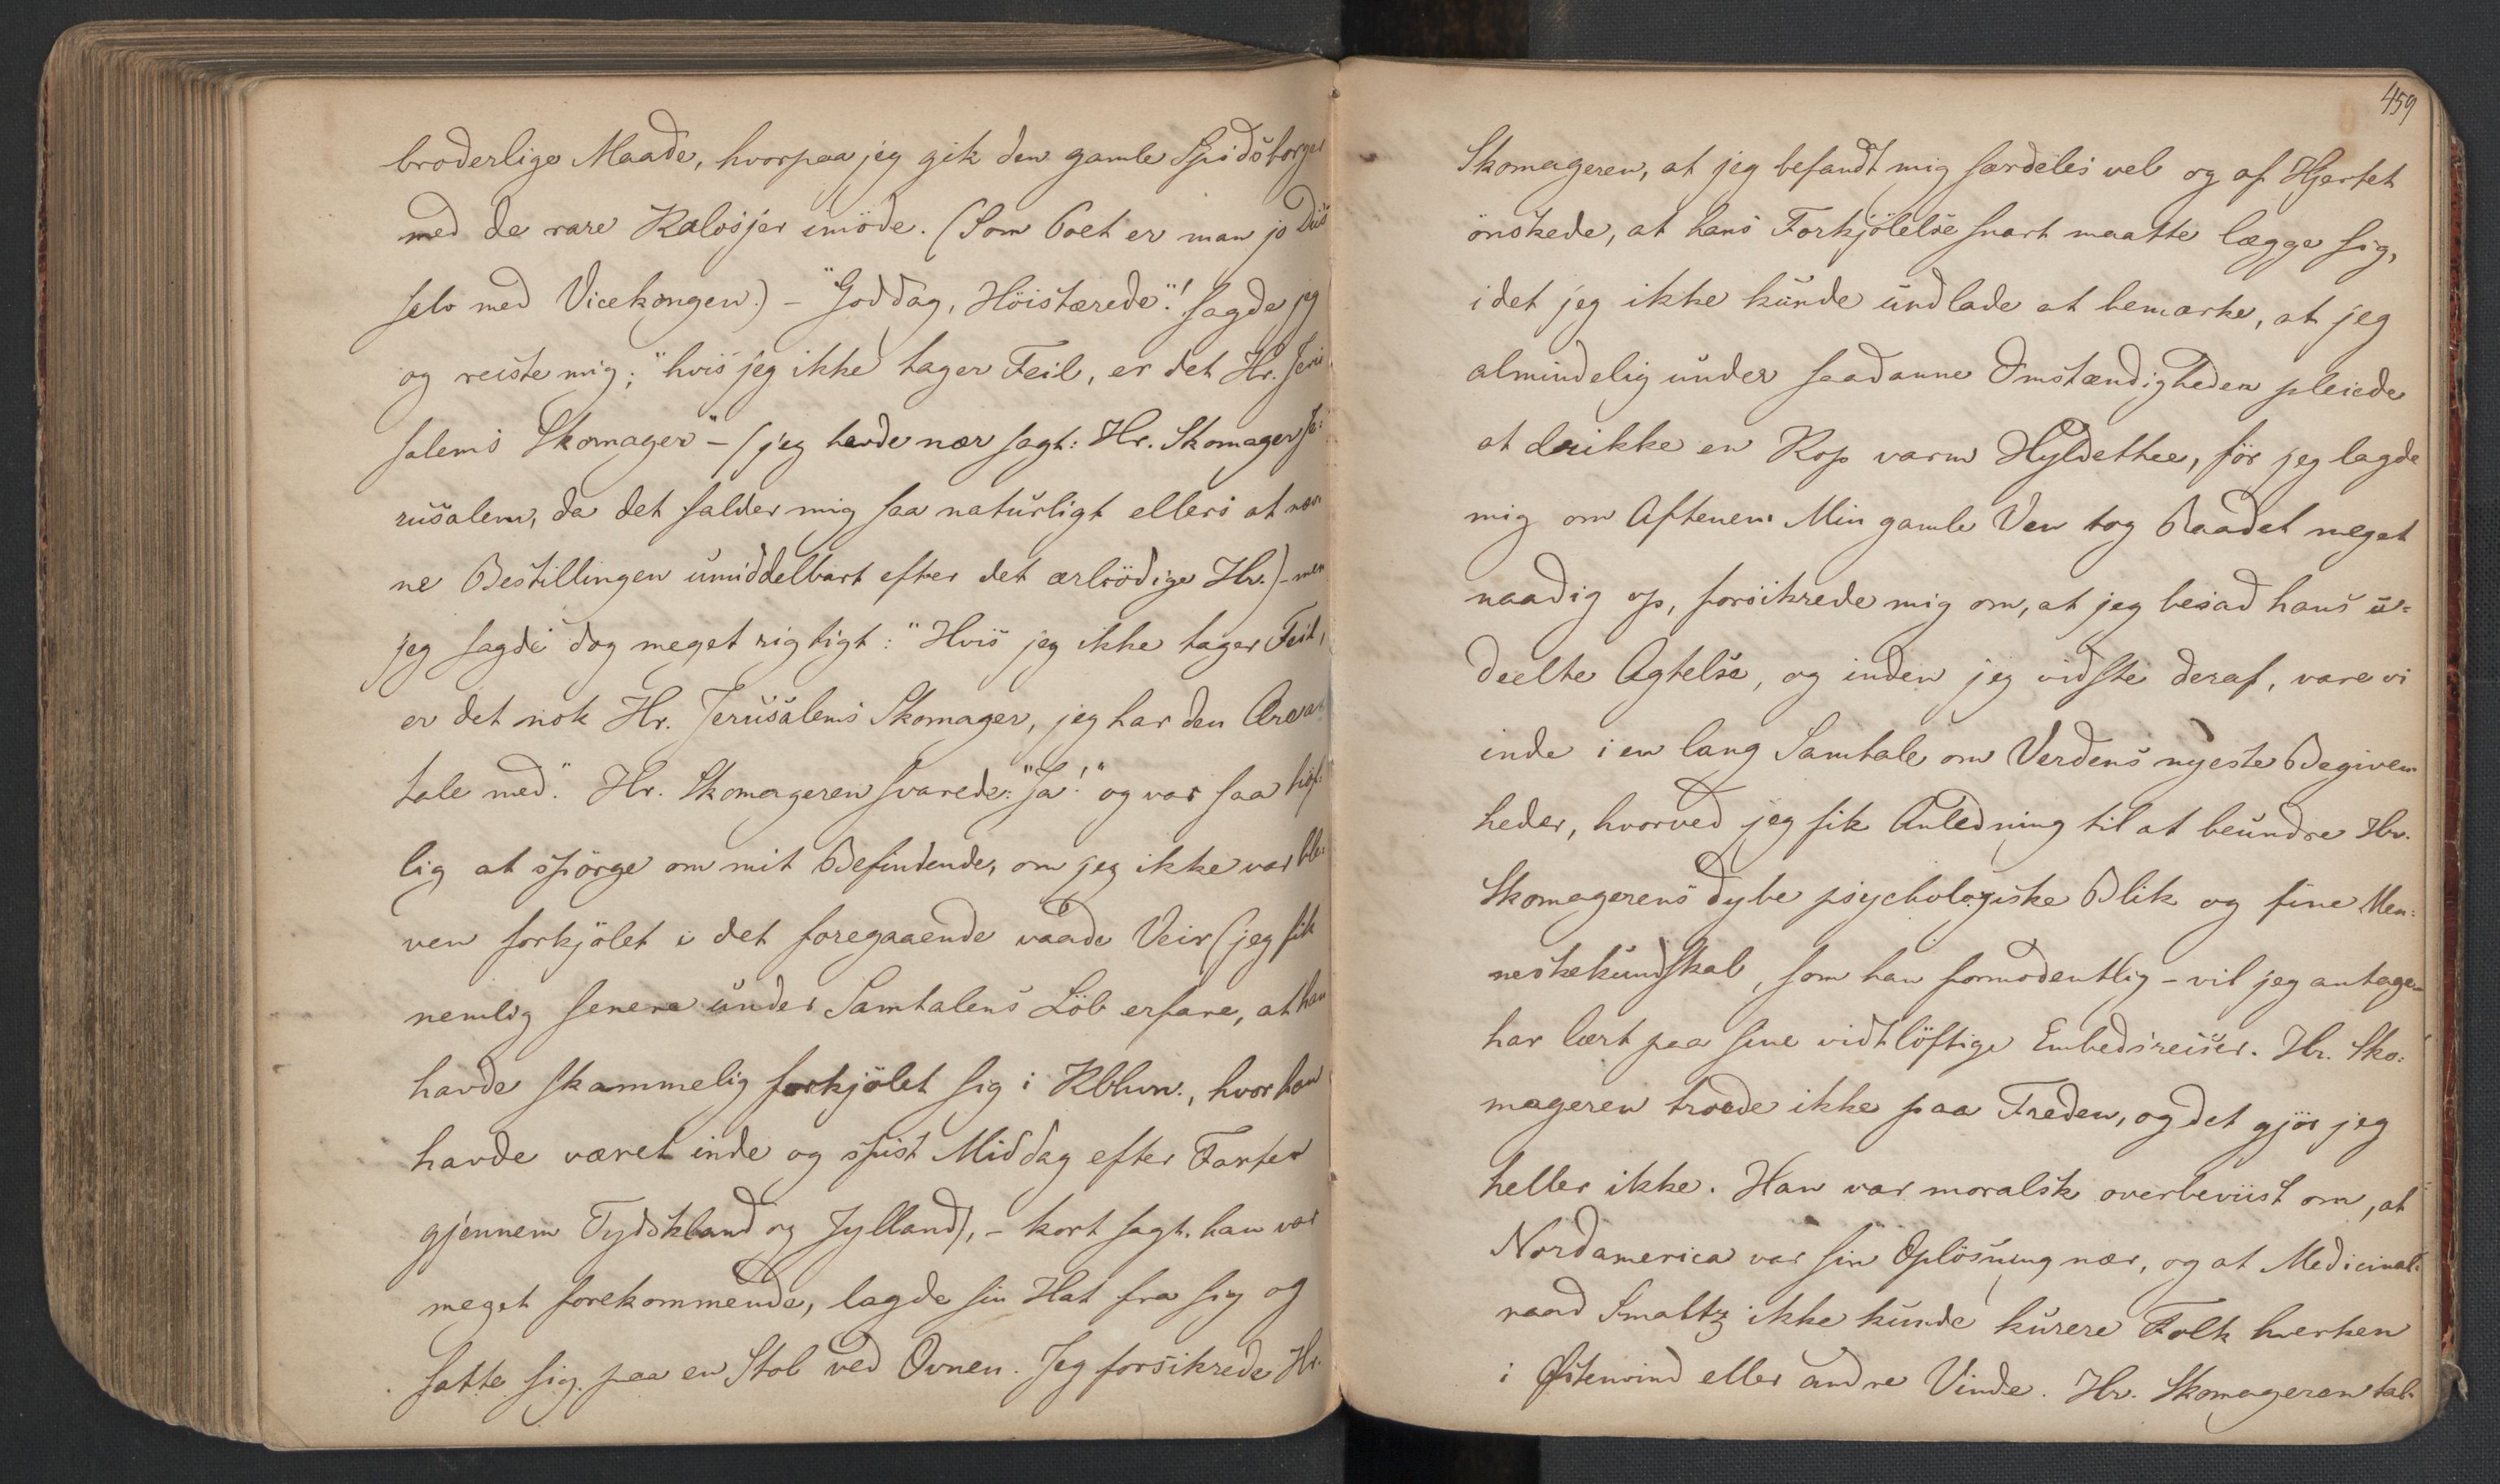 broderlige Maade, hvorpaa jeg gik den gamle Spidsborger
med de rare Kalosjer imöde. (Som Poet er man jo Duus
selv med Vicekongen.) – "Goddag, Höistærede"! sagde jeg
og reiste mig; "hvis jeg ikke tager Feil, er det Hr. Jeru
salems Skomager" – (jeg havde nær sagt: Hr. Skomager Je:
rusalem, da det falder mig saa naturligt ellers at næv
ne Bestillingen umiddelbart efter det ærbödige Hr.) – men
jeg sagde dog meget rigtigt: "Hvis jeg ikke tager Feil,
er det nok Hr. Jerusalems Skomager, jeg har den Ære at
tale med". Hr. Skomageren svarede: "Ja!" og var saa höf:
lig at spörge om mit Befindende, om jeg ikke var ble:
ven forkjölet i det foregaaende vaade Veir (jeg fik
nemlig senere under Samtalens Löb erfare, at han
havde skammelig forkjölet sig i Kbhvn., hvor han
havde været inde og spist Middag efter Farten
gjennem Tydskland og Jylland), – kort sagt. han var
meget forekommende, lagde sin Hat fra sig og
satte sig paa en Stol ved Ovnen. Jeg forsikrede Hr.
459
Skomageren, at jeg befandt mig særdeles vel og af Hjertet
önskede, at hans Forkjölelse snart maatte lægge sig,
idet jeg ikke kunde undlade at bemærke, at jeg
almindelig under saadanne Omstændigheder pleiede
at drikke en Kop varm Hyldethee, för jeg lagde
mig om Aftenen. Min gamle Ven tog Raadet meget
naadig op, forsikrede mig om, at jeg besad hans u=
deelte Agtelse, og inden jeg vidste deraf, vare vi
inde i en lang Samtale om Verdens nyeste Begiven
heder, hvorved jeg fik Anledning til at beundre Hr.
Skomagerens dybe psychologiske Blik og fine Men:
neskekundskab, som han formodentlig – vil jeg antage –
har lært paa sine vidtlöftige Embedsreiser. Hr. Sko:
mageren troede ikke paa Freden, og det gjör jeg
heller ikke. Han var moralsk overbeviist om, at
Nordamerica var sin Oplösning nær, og at Medicinal:
raad Smaltz ikke kunde kurere Folk hverken
i Østenvind eller andre Vinde. Hr. Skomageren tal-